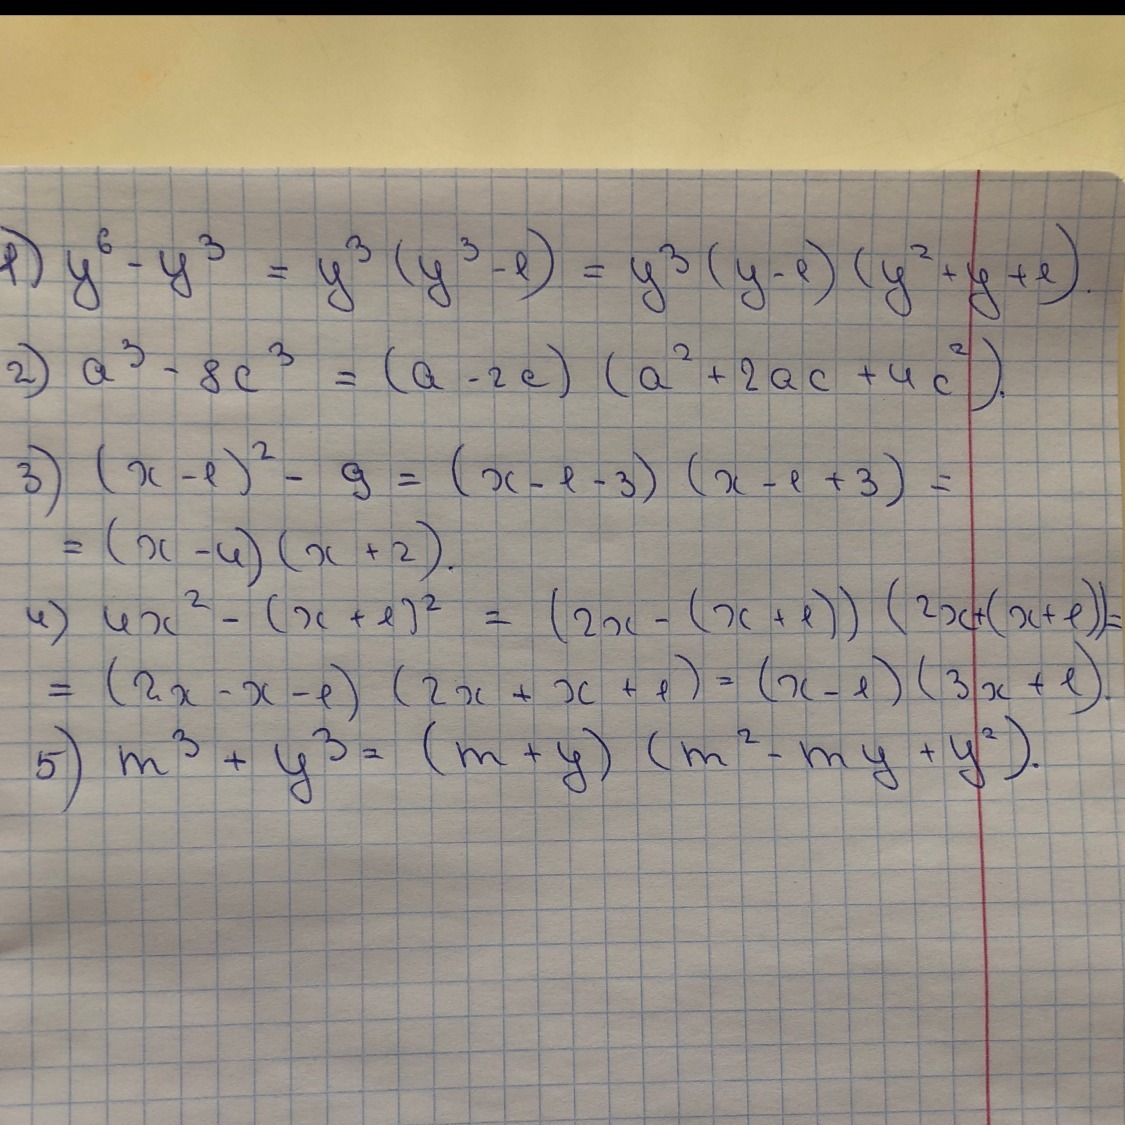 1) y⁶ - y³ = y³ (y³ - 1) = y³ (y - 1) (y² + y + 1).
2) a³ - 8c³ = (a - 2c) (a² + 2ac + 4c²).
3) (x - 1)² - 9 = (x - 1 - 3) (x - 1 + 3) =
= (x - 4) (x + 2).
4) 4x² - (x + 1)² = (2x - (x + 1)) (2x + (x + 1)) =
= (2x - x - 1) (2x + x + 1) = (x - 1) (3x + 1).
5) m³ + y³ = (m + y) (m² - my + y²).